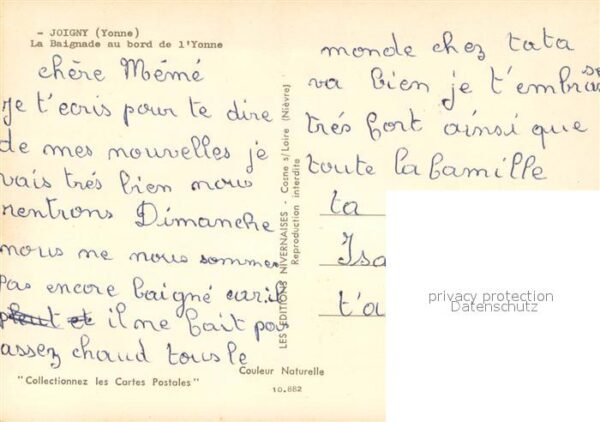 - JOIGNY (Yonne)
La Baignade au bord de l'Yonne
chère Mémé
je t'ecris pour te dire
de mes nouvelles je
vais trés bien nous
rentrons Dimanche
nous ne nous sommes
pas encore baigné car il
pleut et il ne fait pas
assez chaud tous le
monde chez tata
va bien je t'embrasse
trés fort ainsi que
toute la famille
ta
Isa
t'a
LES EDITIONS NIVERNAISES - Cosne s/Loire (Nièvre)
Reproduction interdite
privacy protection
Datenschutz
Couleur Naturelle
"Collectionnez les Cartes Postales"
10.682